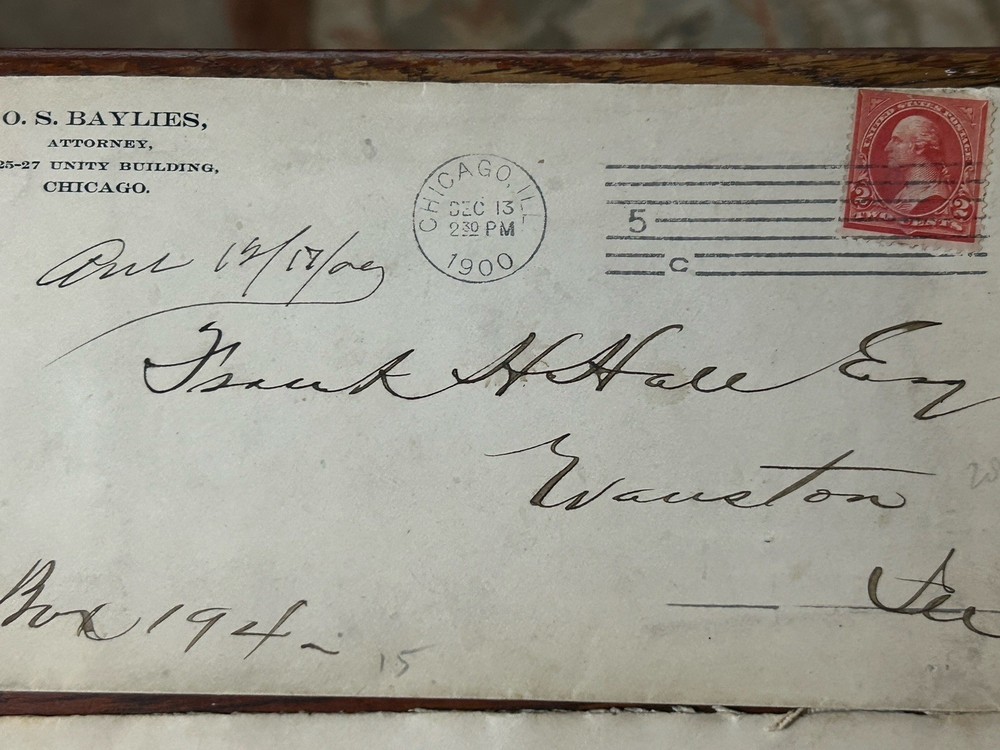 O. S. BAYLIES,
ATTORNEY,
25-27 UNITY BUILDING,
CHICAGO.
CHICAGO, ILL
DEC 13
2 30 PM
1900
5
C
UNITED STATES POSTAGE
2 2
TWO CENTS
Frank H Hall Esq
Evanston
Ill
Box 194-
15